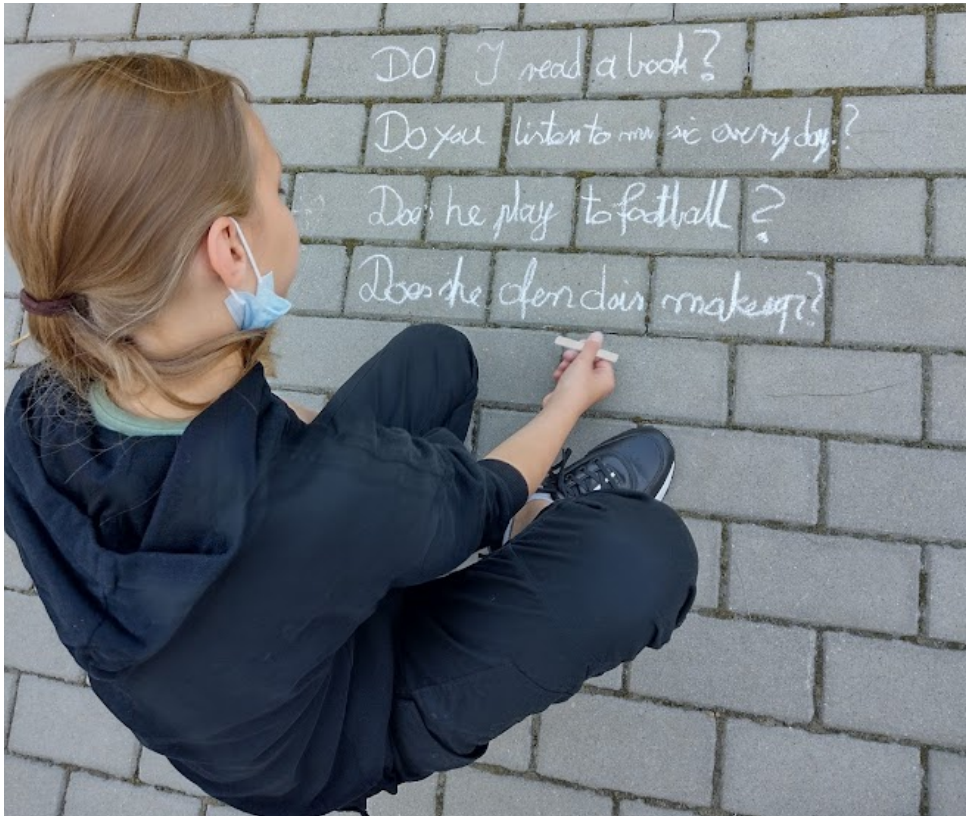 DO I read a book?
Do you listen to music every day?
Does he play to football?
Does she ofen doin makeup?